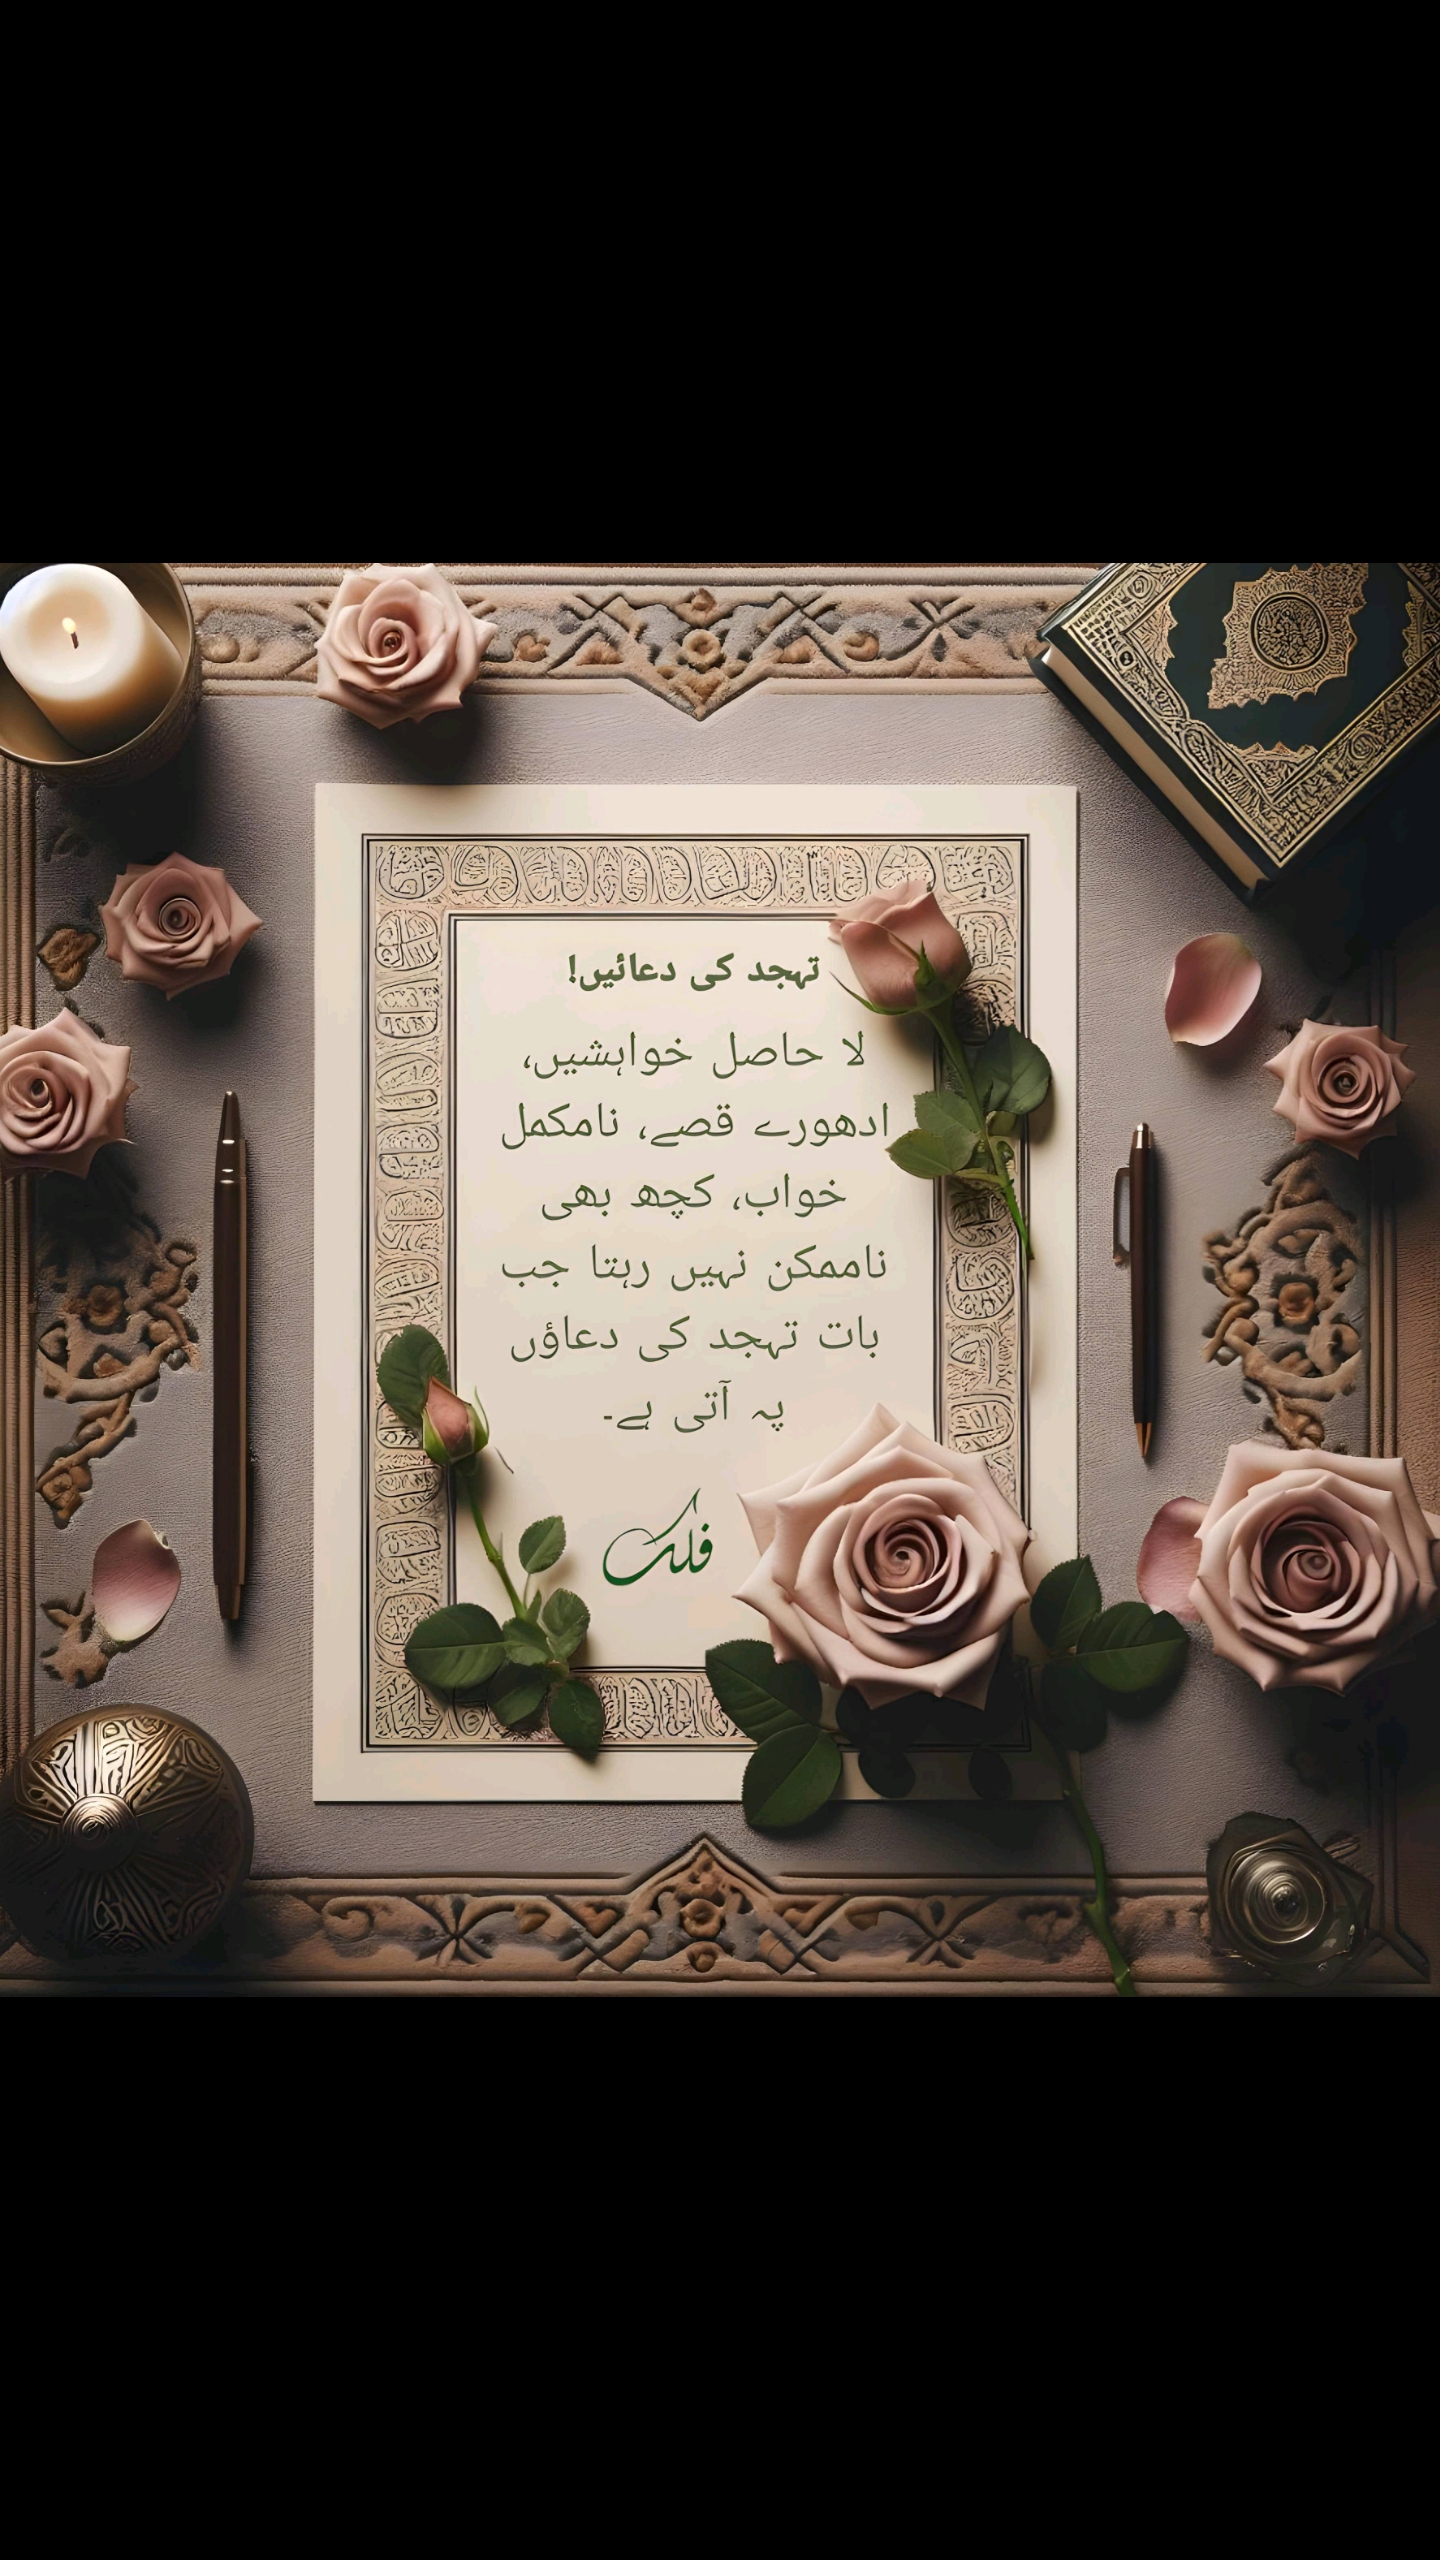 تہجد کی دعائیں!
لا حاصل خواہشیں،
ادھورے قصے، نامکمل
خواب، کچھ بھی
ناممکن نہیں رہتا جب
بات تہجد کی دعاؤں
پہ آتی ہے۔
فلک